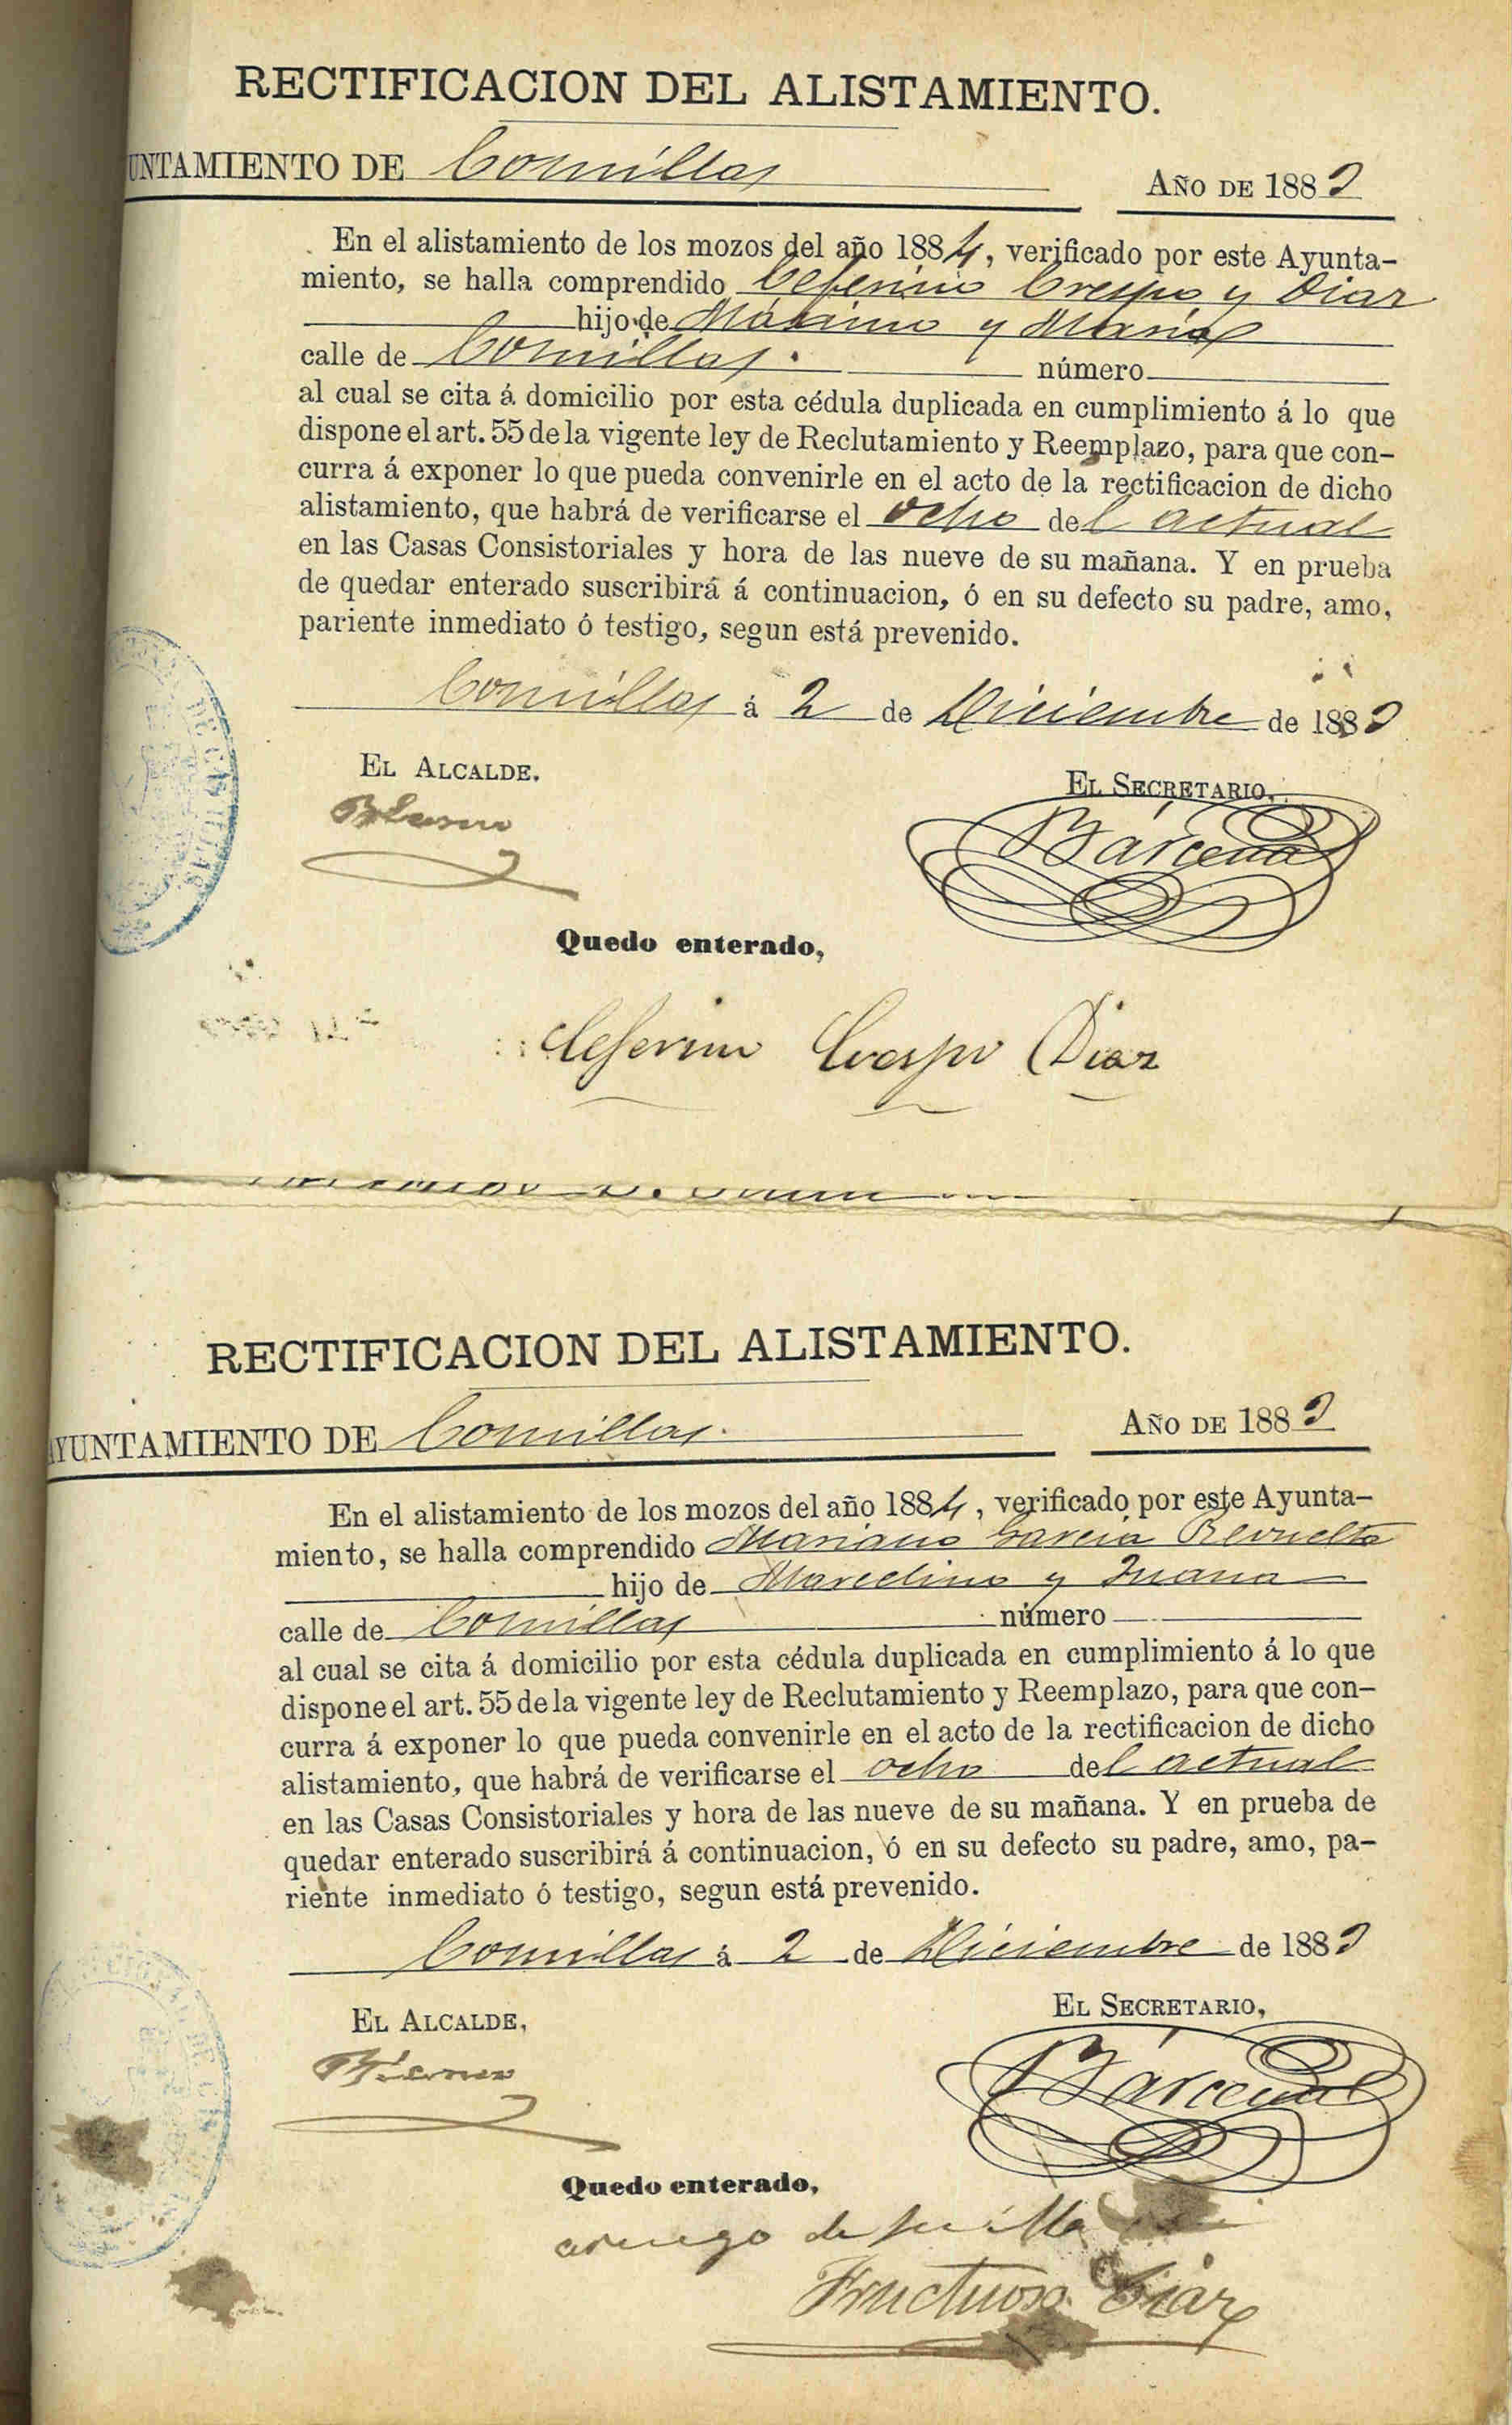 RECTIFICACION DEL ALISTAMIENTO.
UNTAMIENTO DE Comillas AÑO DE 1883
En el alistamiento de los mozos del año 1884, verificado por este Ayunta-
miento, se halla comprendido Ceferino Crespo y Diaz
hijo de Máximo y Maria
calle de Comillas. número
al cual se cita á domicilio por esta cédula duplicada en cumplimiento á lo que
dispone el art. 55 de la vigente ley de Reclutamiento y Reemplazo, para que con-
curra á exponer lo que pueda convenirle en el acto de la rectificacion de dicho
alistamiento, que habrá de verificarse el ocho del actual
en las Casas Consistoriales y hora de las nueve de su mañana. Y en prueba
de quedar enterado suscribirá á continuacion, ó en su defecto su padre, amo,
pariente inmediato ó testigo, segun está prevenido.
Comillas á 2 de Diciembre de 1883
EL ALCALDE.
EL SECRETARIO,
Bárcena
Quedo enterado,
Ceferino Crespo Diaz
RECTIFICACION DEL ALISTAMIENTO.
AYUNTAMIENTO DE Comillas. AÑO DE 1883
En el alistamiento de los mozos del año 1884, verificado por este Ayunta-
miento, se halla comprendido Mariano Garcia Revuelta
hijo de Marcelino y Juana
calle de Comillas número
al cual se cita á domicilio por esta cédula duplicada en cumplimiento á lo que
dispone el art. 55 de la vigente ley de Reclutamiento y Reemplazo, para que con-
curra á exponer lo que pueda convenirle en el acto de la rectificacion de dicho
alistamiento, que habrá de verificarse el ocho del actual
en las Casas Consistoriales y hora de las nueve de su mañana. Y en prueba de
quedar enterado suscribirá á continuacion, ó en su defecto su padre, amo, pa-
riente inmediato ó testigo, segun está prevenido.
Comillas á 2 de Diciembre de 1883
EL ALCALDE,
EL SECRETARIO,
Bárcena
Quedo enterado,
aruego de su
Fructuoso Diaz